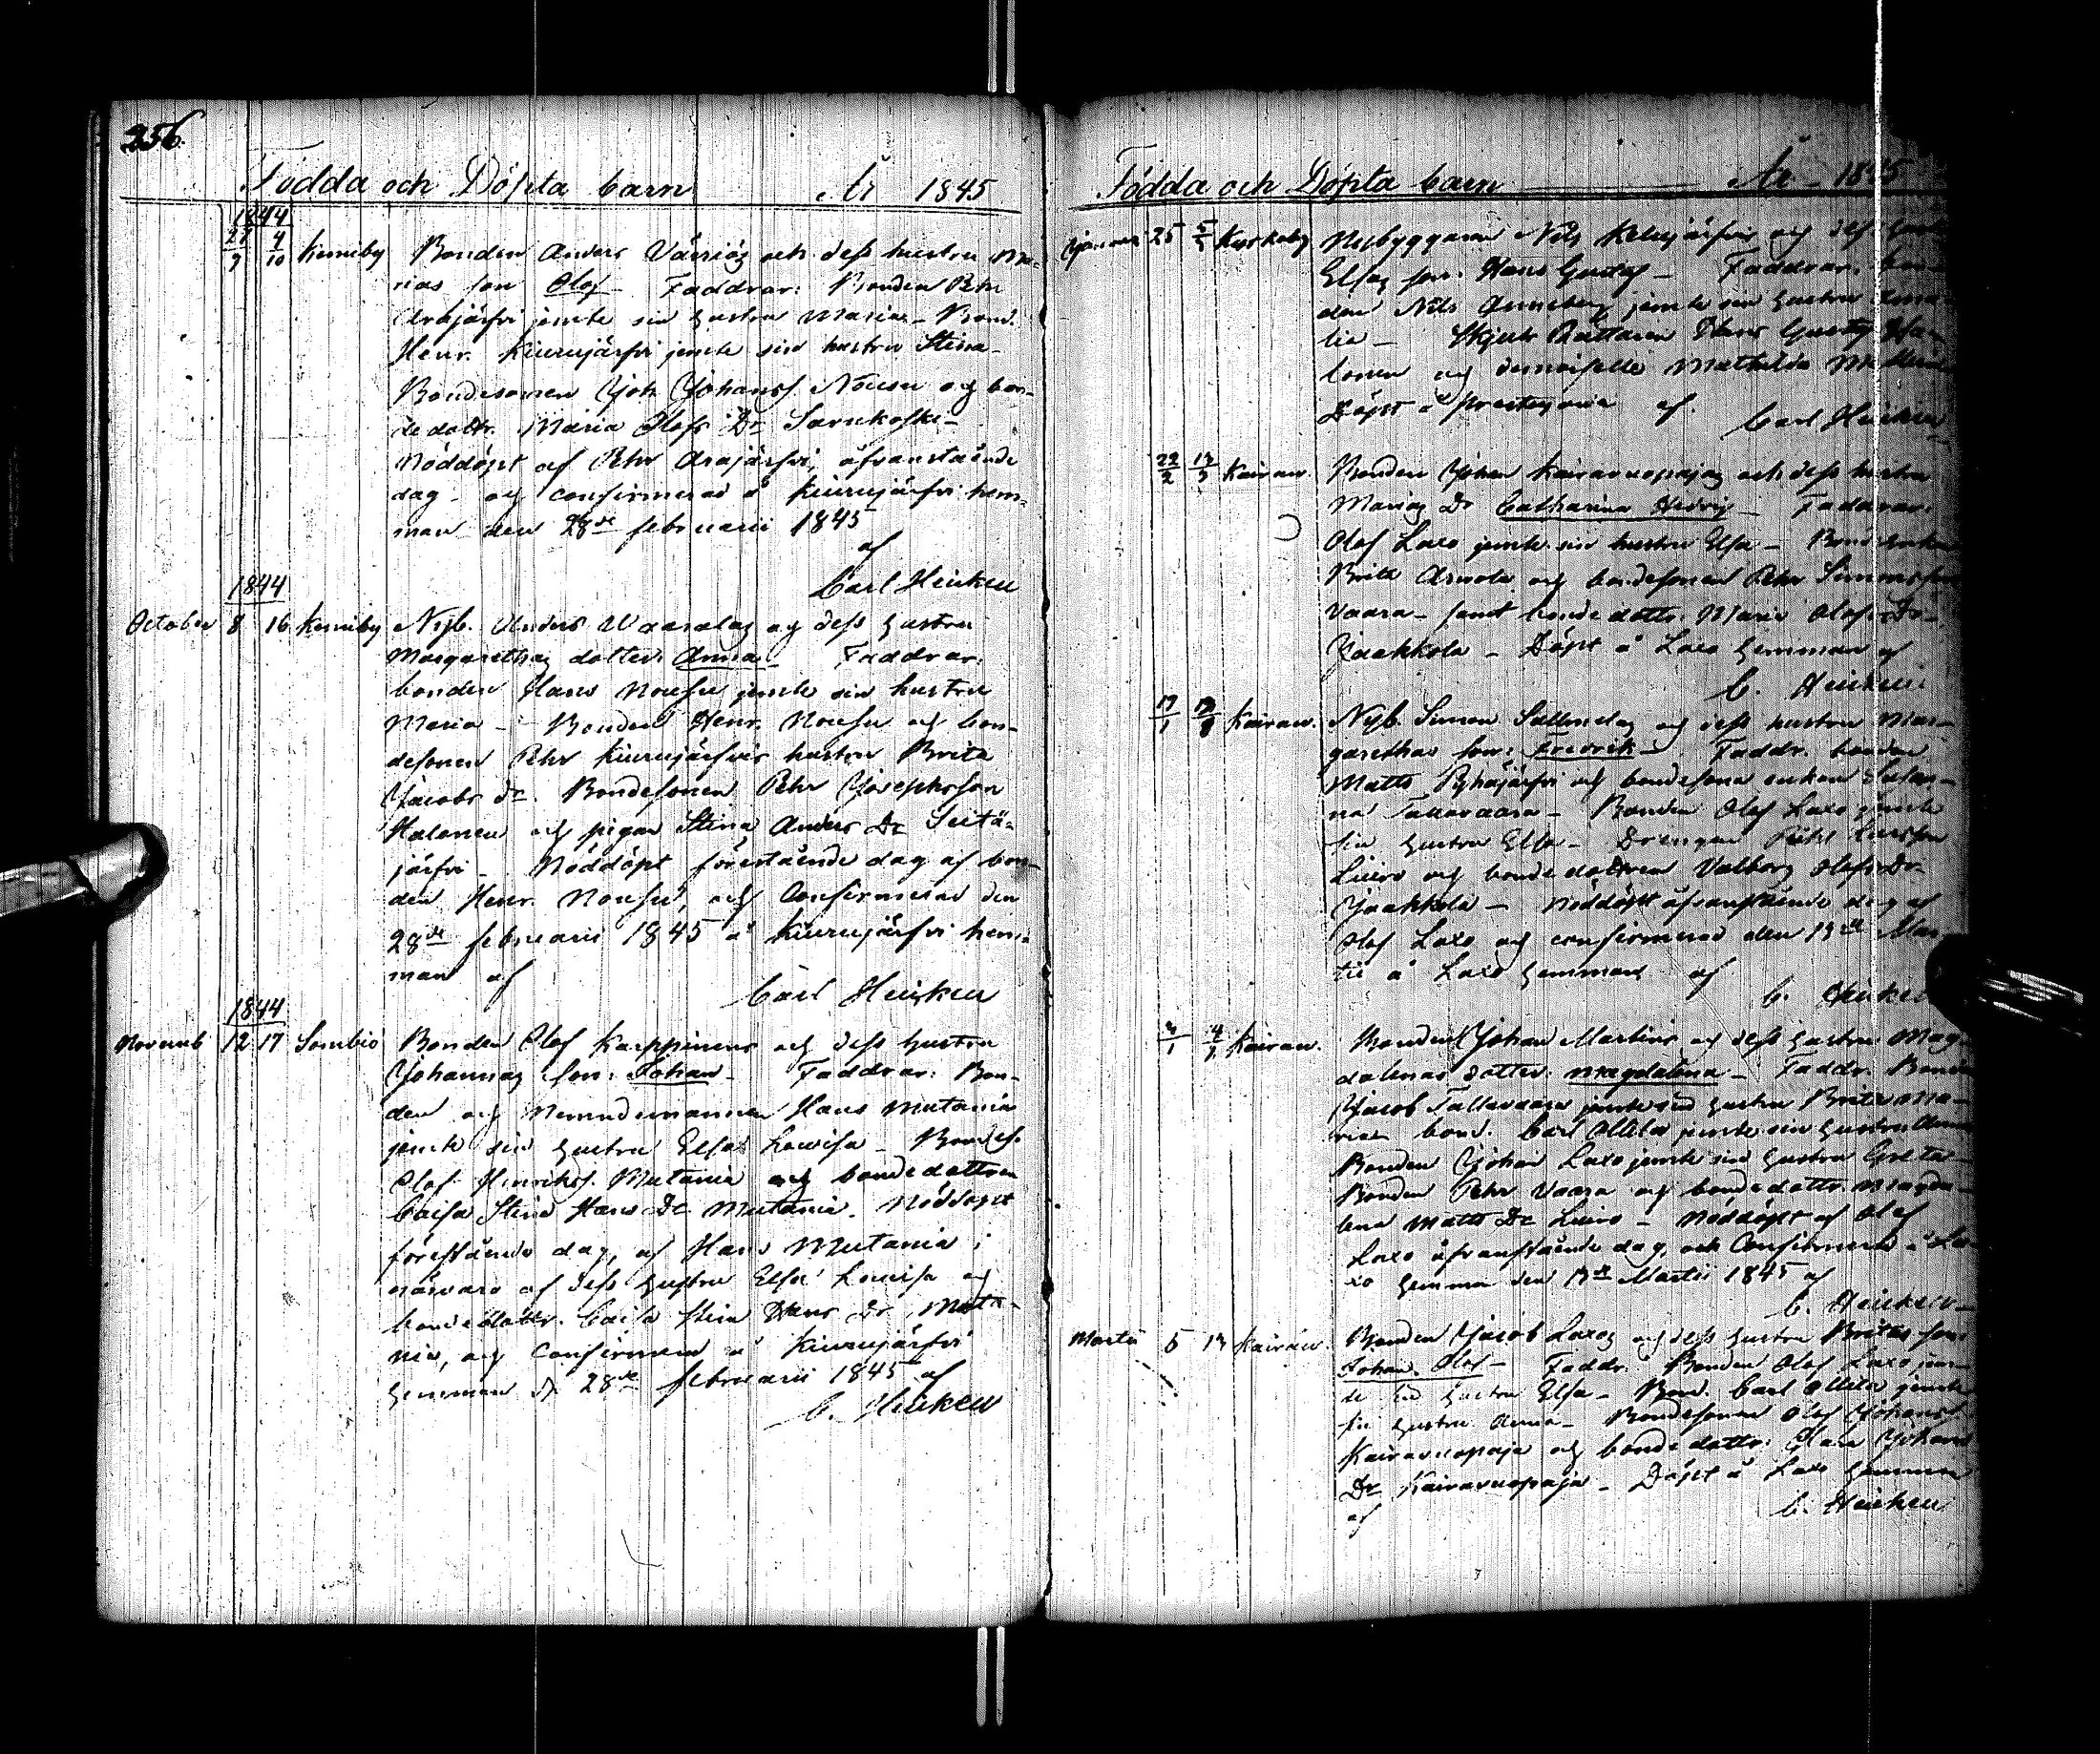 256.
Födda och Döpta barn År 1845
1844
27/9 4/10 Kemiby Bonden Anders Värriöz och dess hustru Ma-
rias son Olof – Faddrar: Bonden Pehr
Arajärfvi jemte sin hustru Maria – Bond.
Henr. Kiurujärfvi jemte sin hustru Stina –
Bondesonen Joh. Johanss. Nousu och bon-
dedottr. Maria Olofs Dr Sarukoski –
Nöddöpt af Pehr Arajärfvi, ofvanstående
dag – och confirmerad å Kiurujärfvi hem-
man den 28de februarii 1845
af
Carl Heikel
1844
October 8 16 Kemiby Nyb. Anders Waaralaz och dess hustru
Margarethaz dotter Anna – Faddrar:
bonden Hans Nousu jemte sin hustru
Maria – Bonden Henr. Nousu och bon-
desonen Pehr Kiurujärfvis hustru Brita
Jacobs dr. Bondesonen Pehr Josephsson
Halonen och pigan Stina Anders Dr Seitä-
järfvi – Nöddöpt förestående dag af bon-
den Henr. Nousu, och Confirmerad den
28de februarii 1845 å Kiurujärfvi hem-
man af
Carl Heikel
1844
Novemb 12 17 Sombio Bonden Olof Karppinens och dess hustru
Johannaz son: Johan – Faddrar: Bon-
den och Nemndemannen Hans Mutania
jemte sin hustru Elsa Lovisa – Bondes.
Olof Henrikss. Mutania och bondedottren
Caisa Stina Hans Dr Mutania. Nöddöpt
förestående dag, af Hans Mutania i
närvaro af dess hustru Elsa Lovisa och
bondedottr. Caisa Stina Hans Dr Muta-
nia, och Confirmerad å Kiurujärfvi
hemman d. 28de februarii 1845 af
C. Heikel
Födda och Döpta barn År 1845
Januari 25 Nybyggaren Nils Kelujärfvis och dess hust
Elsaz son: Hans Gustaf – Faddrar: bon-
den Nils jemte sin hustru
lia – Hans Gustaf
och demoiselle Mathilda
Döpt å prestegården af
Carl Heikel
22/2 13/3 Kairav. Bonden Johan Kairavuopajaz och dess hustru
Mariaz Dr Catharina Hedvig – Faddrar:
Olof Laxo jemte sin hustru Elsa – Bonde
Brita Arvola och bondesonen Pehr Simonsson
Vaara – samt bondedottr. Maria Olofs Dr
Jaakkola – Döpt å Laxo hemman af
C. Heikel
17/1 Kairav. Nyb. Simon Sattanelaz och dess hustru Mar-
garethas son: Fredrik – Faddr. bonden
Matts Pyhäjärfvi och bondesons enkan Susan-
na Tallavaara – Bonden Olof Laxo jemte
sin hustru Elsa – Drengen
Luiro och bondedottren Valborg Olofs Dr
Jaakkola – Nöddöpt ofvanstående dag af
Olof Laxo och confirmerad den 13de Mar-
tii å Laxo hemman af
C. Heikel
Kairav. Bonden Johan Martins och dess hustru Mag-
dalenas dotter Magdalena – Faddr. Bonden
Jacob Tallavaara jemte sin hustru Brita Ma-
ria – bond. Carl Ollila jemte sin hustru Anna
Bonden Johan Laxo jemte sin hustru Greta –
Bonden Pehr Vaara och bondedottr. Magda-
lena Matts Dr Luiro – Nöddöpt af Olof
Laxo ofvanstående dag, och Confirmerad å La-
xo hemman den 13de Martii 1845 af
C. Heikel
Martii 5 13 Kairav. Bonden Jacob Laxoz och dess hustru Britas son
Johan Olof – Faddr. Bonden Olof Laxo jem-
te sin hustru Elsa – Bond. Carl Ollila jemte
sin hustru Anna – Bondesonen Olof Johanss.
Kairavuopaja och bondedottr. Johans
Dr Kairavuopaja – Döpt å Laxo hemman
af C. Heikel